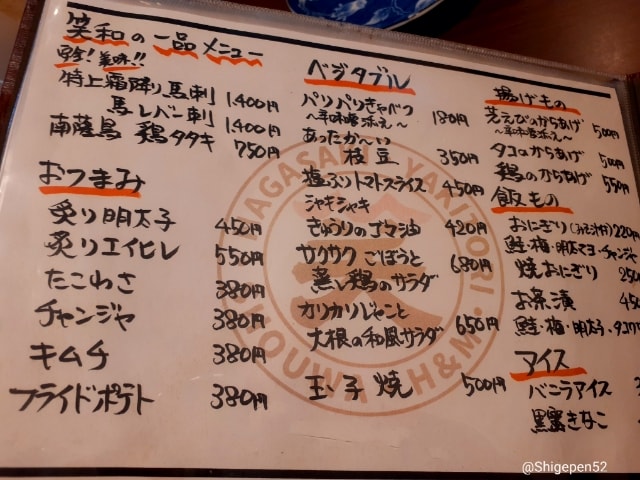 笑和の一品メニュー
安全!美味!!
特上霜降り馬刺 1,400円
馬レバー刺 1,400円
南薩鳥 鶏タタキ 750円
おつまみ
炙り明太子 450円
炙りエイヒレ 550円
たこわさ 380円
チャンジャ 380円
キムチ 380円
フライドポテト 380円
ベジタブル
パリパリきゃべつ 180円
〜辛味噌添え〜
あったか〜い
枝豆 350円
塩ぶりトマトスライス 450円
シャキシャキ
きゅうりのゴマ油 420円
サクサクごぼうと 680円
蒸し鶏のサラダ
カリカリじゃこと
大根の和風サラダ 650円
玉子焼 500円
揚げもの
芝えびのからあげ 500円
〜辛味噌添え〜
タコのからあげ 500円
鶏のからあげ 550
飯もの
おにぎり 220円
鮭・梅・明太マヨ・チャンジャ
焼おにぎり
お茶漬
鮭・梅・明太子・タコワサ
アイス
バニラアイス
黒蜜きなこ
NAGASAKI YAKITORI
SHOUWA H&M.
笑
@Shigepen52